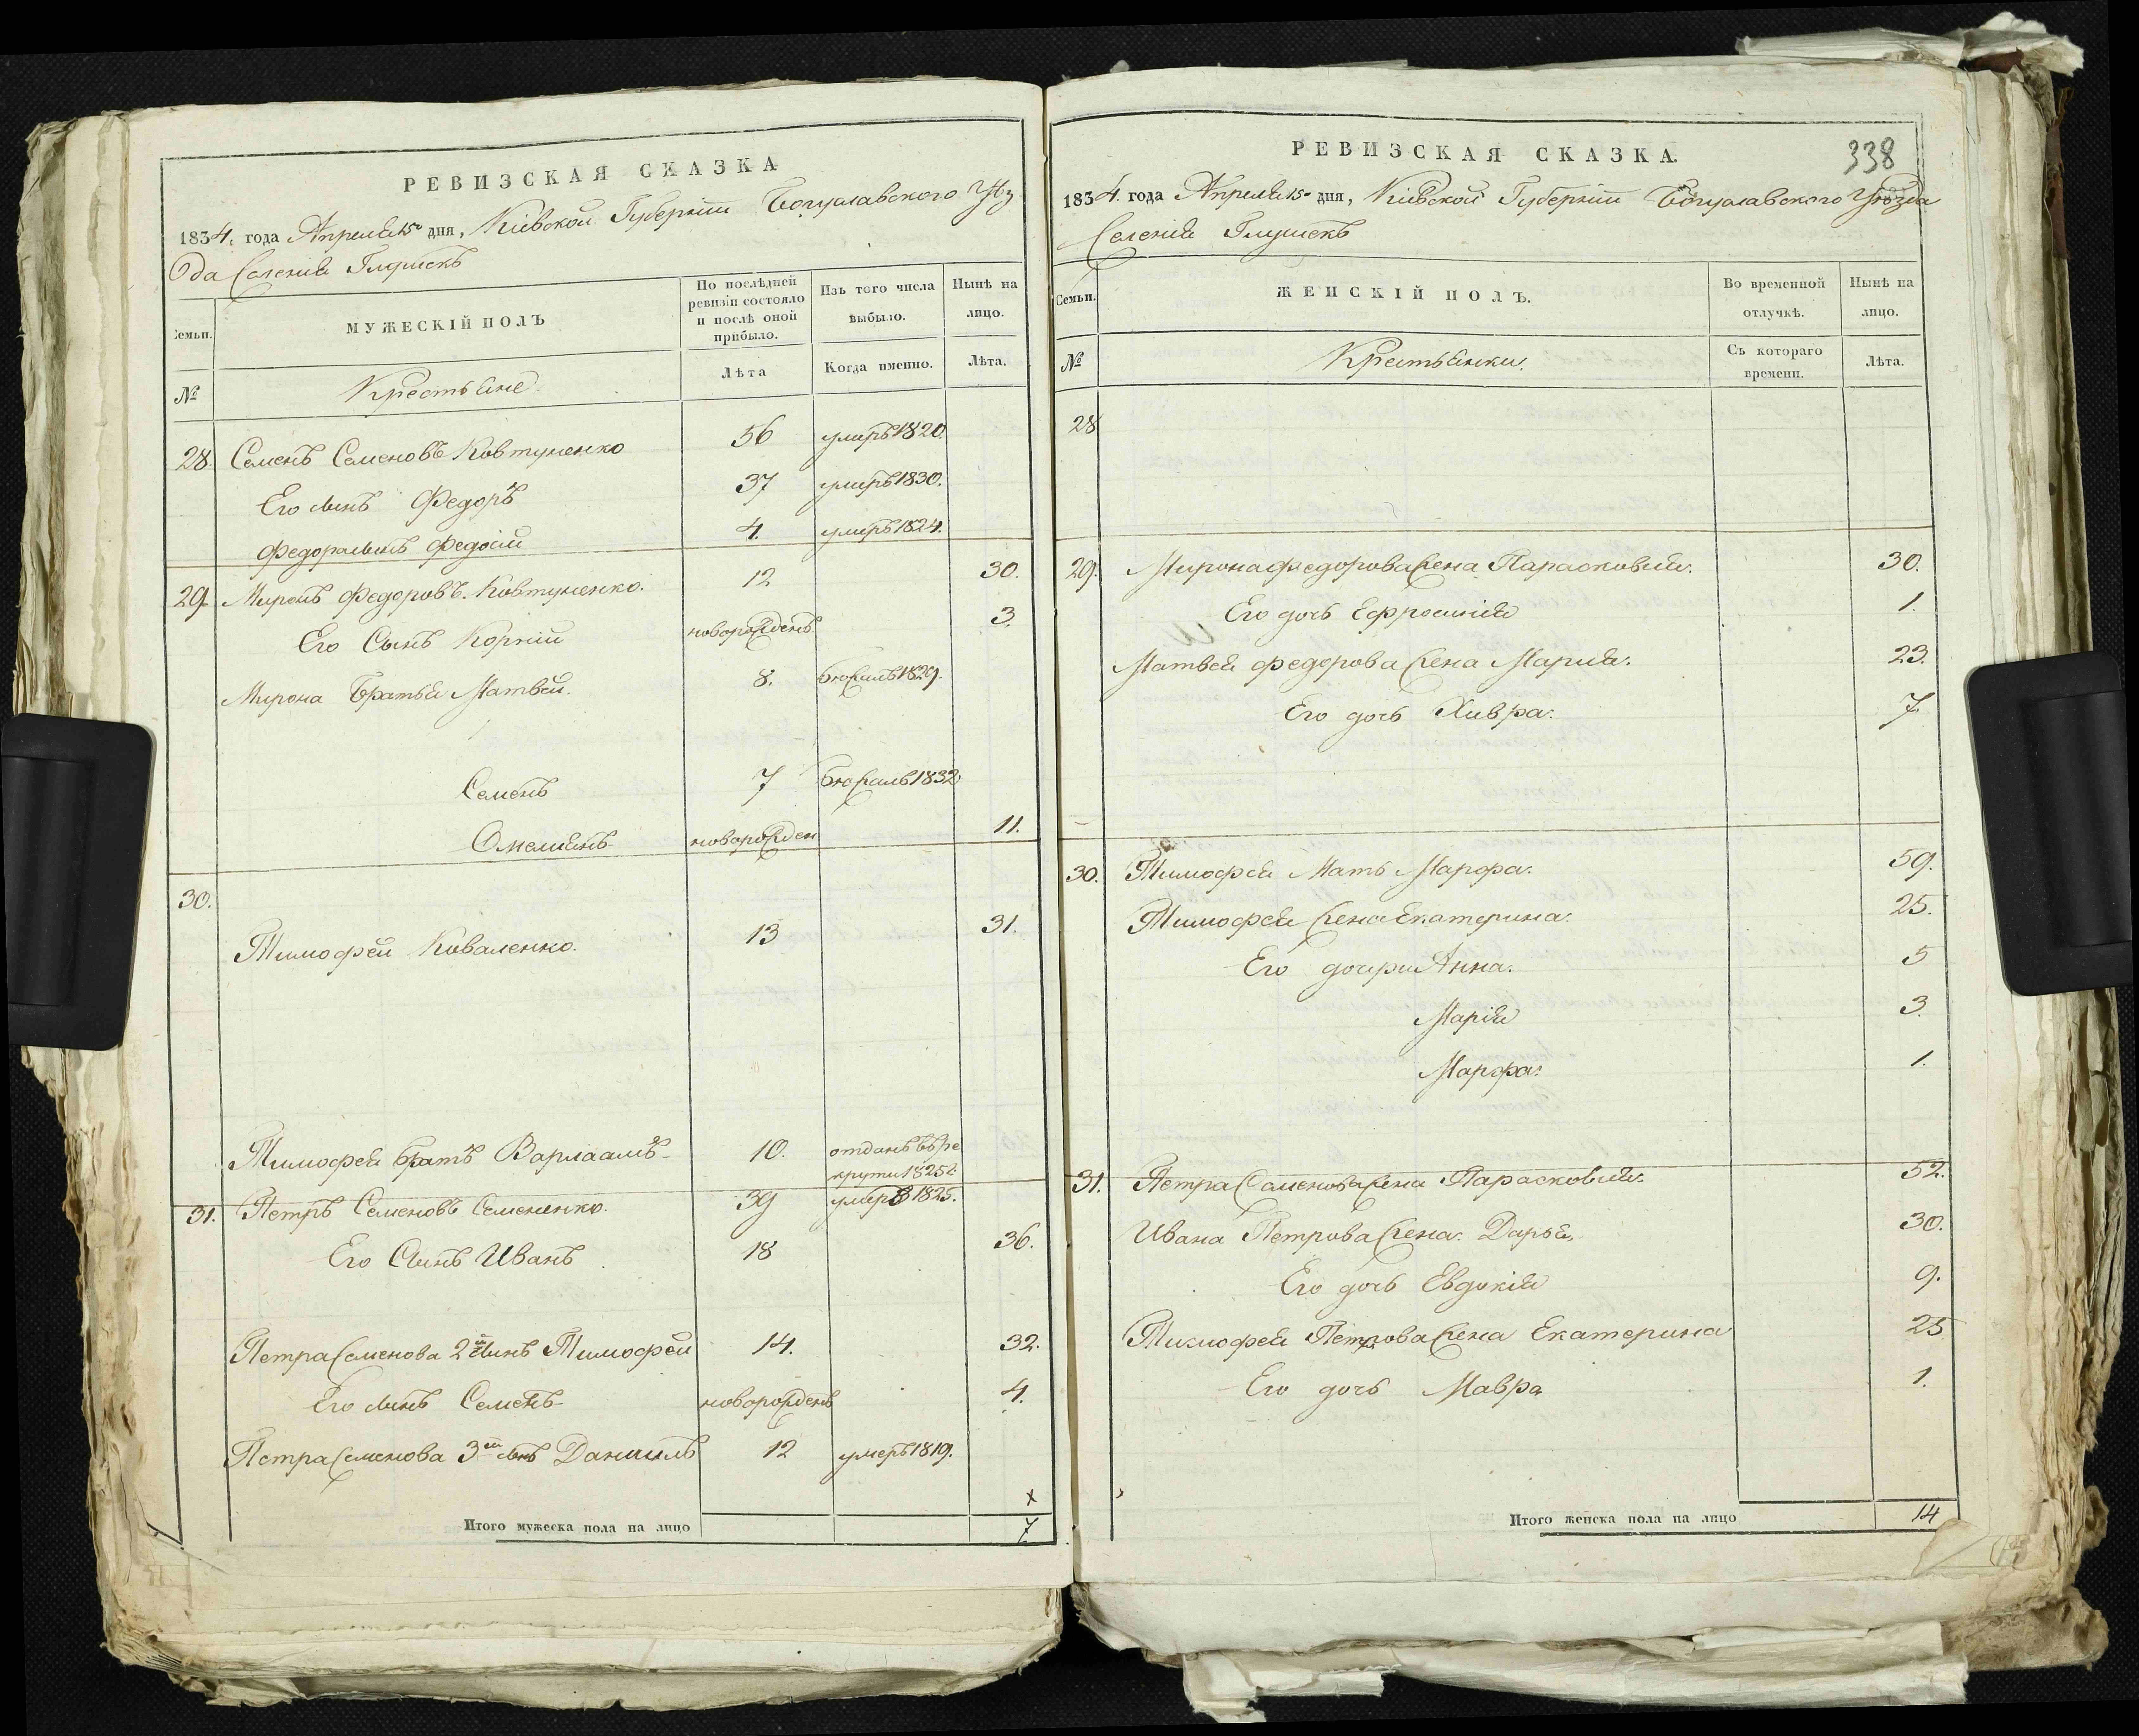 РЕВИЗСКАЯ СКАЗКА
1834. года Апреля 15го дня, Кіевской Губерніи Богуславского Уѣз
да Селенія Глушекъ
Семьи.
МУЖЕСКІЙ ПОЛЪ
По послѣдней ревизіи состояло и послѣ оной прибыло.
Изъ того числа выбыло.
Нынѣ на лицо.
№
Крестьяне
Лѣта
Когда именно.
Лѣта.
28. Семенъ Семеновъ Ковтуненко 56 умеръ 1820.
Его сынъ Федоръ 37 умеръ 1830.
Федора сынъ Федосій 4. умеръ 1824.
29. Миронъ Федоровъ Ковтуненко. 12 30.
Его Сынъ Корній новорожденъ 3.
Мирона Братья Матвей. 8. бежалъ 1829.
Семенъ 7 бежалъ 1832
Омельянъ новорожден 11.
30.
Тимофей Коваленко. 13 31.
Тимофея братъ Варлаамъ 10. отданъ въ ре
круты 1825г
31. Петръ Семеновъ Семененко. 39 умеръ 1825.
Его Сынъ Иванъ 18 36.
Петра Семенова 2й сынъ Тимофей 14. 32.
Его сынъ Семенъ новорожденъ 4.
Петра Семенова 3й сынъ Даниилъ 12 умеръ 1819.
х
Итого мужеска пола на лицо 7
338
РЕВИЗСКАЯ СКАЗКА.
1834. года Апреля 15го дня, Кіевской Губерніи Богуславского Уѣзда
Селенія Глушекъ
Семьи.
ЖЕНСКІЙ ПОЛЪ.
Во временной отлучкѣ.
Нынѣ на лицо.
№
Крестьянки.
Съ котораго времени.
Лѣта.
28
29. Мирона Федорова жена Парасковия. 30.
Его дочь Ефросинія 1.
Матвея Федорова жена Мария. 23.
Его дочь Хивра. 7.
30. Тимофея Мать Марфа. 59.
Тимофея жена Екатерина. 25.
Его дочери Анна. 5
Марія 3.
Марфа. 1.
31. Петра Семенова жена Парасковия. 52.
Ивана Петрова жена Дарья. 30.
Его дочь Евдокія 9.
Тимофея Петрова жена Екатерина 25
Его дочь Мавра 1.
Итого женска пола на лицо 14